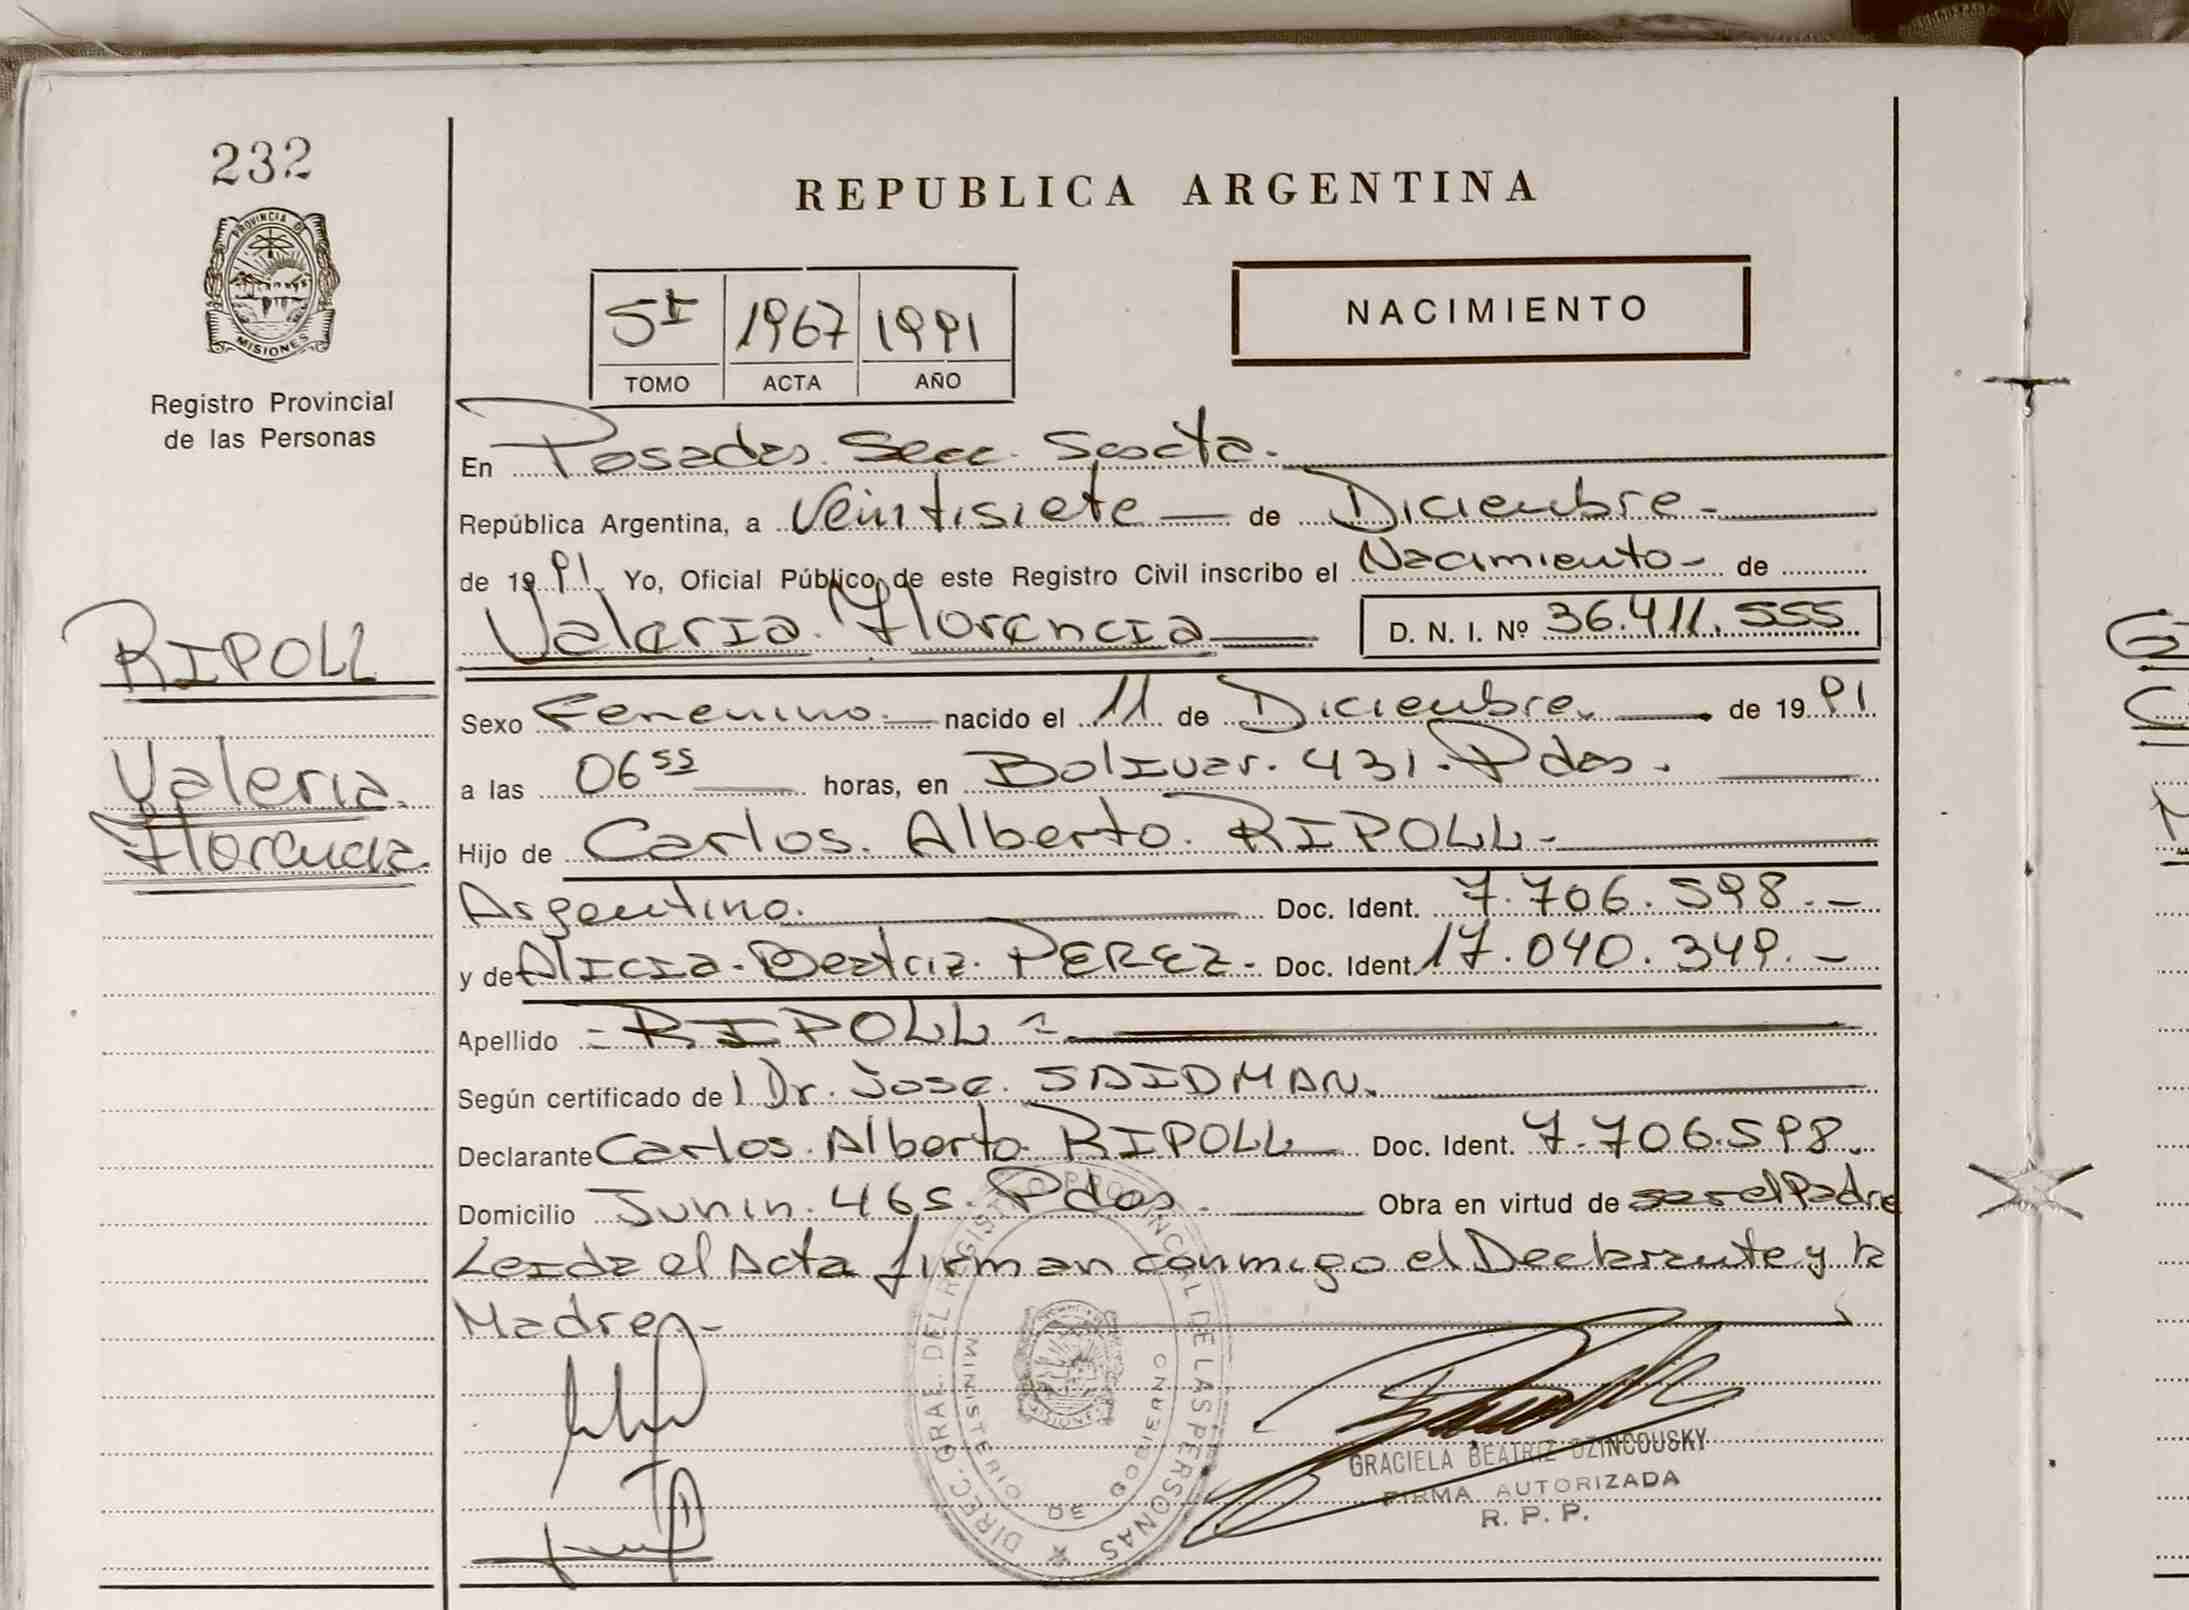 232
PROVINCIA DE
MISIONES
Registro Provincial
de las Personas
RIPOLL
Valeria.
Florencia.
REPUBLICA ARGENTINA
5º I 1967 1991
TOMO ACTA AÑO
NACIMIENTO
En Posadas. Secc. Sexta.
República Argentina, a Veintisiete de Diciembre
de 1991 Yo, Oficial Público de este Registro Civil inscribo el Nacimiento de
Valeria. Florencia D. N. I. Nº 36.411.555
Sexo Femenino. nacido el 11 de Diciembre. de 1991
a las 06 55 horas, en Bolivar. 431. Pdas.
Hijo de Carlos. Alberto. RIPOLL-
Argentino. Doc. Ident. 7.706.598.-
y de Alicia. Beatriz. PEREZ- Doc. Ident. 17.040.349.-
Apellido =RIPOLL=
Según certificado de l Dr. Jose. SAIDMAN.
Declarante Carlos. Alberto. RIPOLL Doc. Ident. 7.706.598.
Domicilio Junin. 465. Pdas. Obra en virtud de ser el Padre
Leida el Acta firman conmigo el Declarante y la
Madre.-
DIREC. GRAL. DEL REGISTRO PROVINCIAL DE LAS PERSONAS
MINISTERIO DE GOBIERNO
MISIONES
GRACIELA BEATRIZ OZINCOUSKY
FIRMA AUTORIZADA
R. P. P.